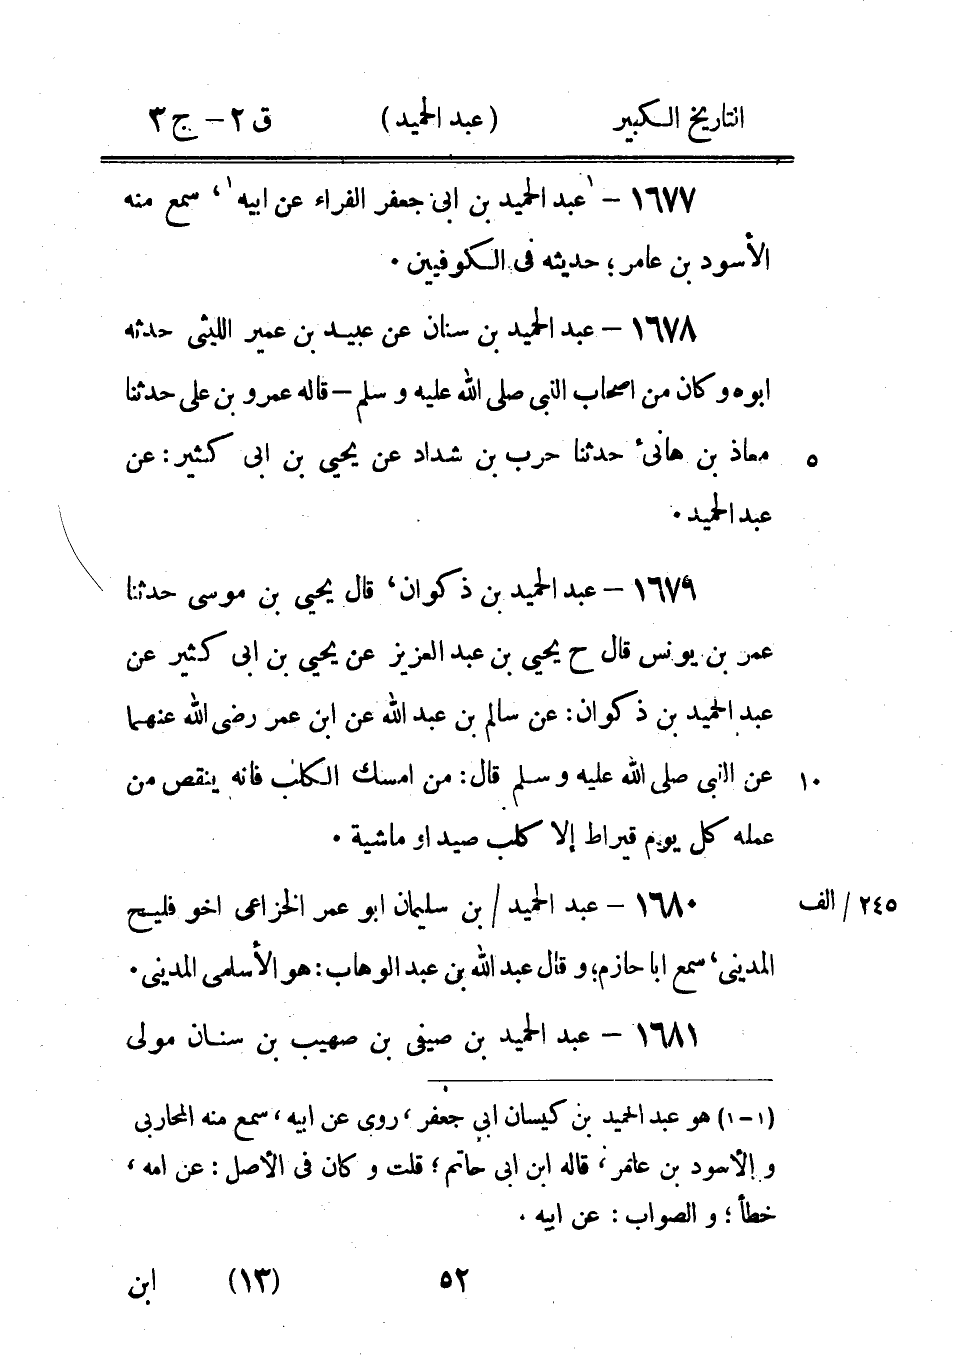 التاريخ الكبير (عبد الحميد) ق ٢ - ج ٣
١٦٧٧ - ¹عبد الحميد بن ابى جعفر الفراء عن ابيه¹، سمع منه
الأسود بن عامر؛ حديثه فى الكوفيين ٠
١٦٧٨ - عبد الحميد بن سنان عن عبيد بن عمير الليثى حدثه
ابوه وكان من اصحاب النبى صلى الله عليه و سلم - قاله عمرو بن على حدثنا
معاذ بن هانىء حدثنا حرب بن شداد عن يحيى بن ابى كثير: عن ٥
عبد الحميد ٠
١٦٧٩ - عبد الحميد بن ذكوان، قال يحيى بن موسى حدثنا
عمر بن يونس قال ح يحيى بن عبد العزيز عن يحيى بن ابى كثير عن
عبد الحميد بن ذكوان: عن سالم بن عبد الله عن ابن عمر رضى الله عنهما
عن النبى صلى الله عليه و سلم قال: من امسك الكلب فانه ينقص من ١٠
عمله كل يوم قيراط إلا كلب صيد او ماشية ٠
١٦٨٠ - عبد الحميد / بن سليمان ابو عمر الخزاعى اخو فليح ٢٤٥ / الف
المدينى، سمع ابا حازم؛ و قال عبد الله بن عبد الوهاب: هو الأسلمى المدينى ٠
١٦٨١ - عبد الحميد بن صيفى بن صهيب بن سنان مولى
(١-١) هو عبد الحميد بن كيسان ابي جعفر، روى عن ابيه، سمع منه المحاربى
و الأسود بن عامر، قاله ابن ابى حاتم؛ قلت و كان فى الأصل: عن امه،
خطأ؛ و الصواب: عن ابيه ٠
٥٢ (١٣) ابن